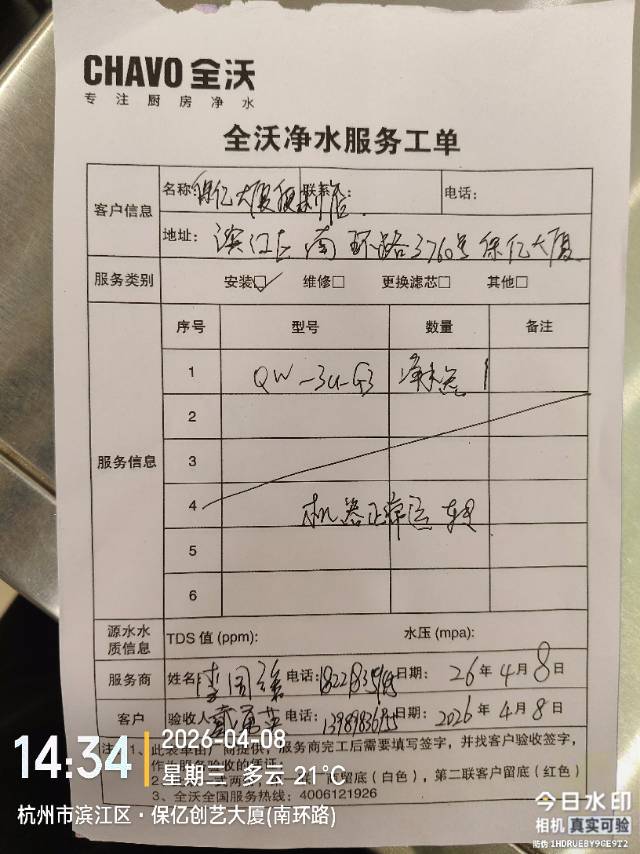 CHAVO 全沃
专注厨房净水
全沃净水服务工单
客户信息
名称: 保亿大厦 联系 : 电话:
地址: 滨江区南环路3760号保亿大厦
服务类别 安装☑ 维修□ 更换滤芯□ 其他□
服务信息
序号 型号 数量 备注
1 QW-3u-G3 净水器 1
2
3
4 机器正常运转
5
6
源水水质信息 TDS 值 (ppm): 水压 (mpa):
服务商 姓名 李 电话: 日期: 26 年 4 月 8 日
客户 验收人 戴 电话: 日期: 2026 年 4 月 8 日
注: 1、此表单由厂商提供, 服务商完工后需要填写签字, 并找客户验收签字,
作为服务验收的凭证;
2、一式两 底 (白色), 第二联客户留底 (红色)
3、全沃全国服务热线: 4006121926
14:34
2026-04-08
星期三 多云 21℃
杭州市滨江区·保亿创艺大厦(南环路)
今日水印
相机 真实可验
防伪 1HDRUEBY9GE9T2